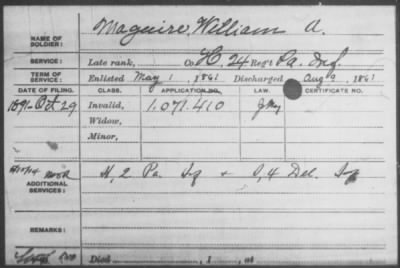 NAME OF SOLDIER: Maguire, William A.
SERVICE: Late rank, Co. H, 24 Reg't Pa. Inf.
TERM OF SERVICE: Enlisted May 1, 1861 Discharged Aug 9, 1861
DATE OF FILING. CLASS. APPLICATION NO. LAW. CERTIFICATE NO.
1891-Oct 29 Invalid, 1.071.410
Widow,
Minor,
ADDITIONAL SERVICES: H, 2 Pa. Inf + I, 4 Del. Inf
REMARKS:
Died , 1 , at